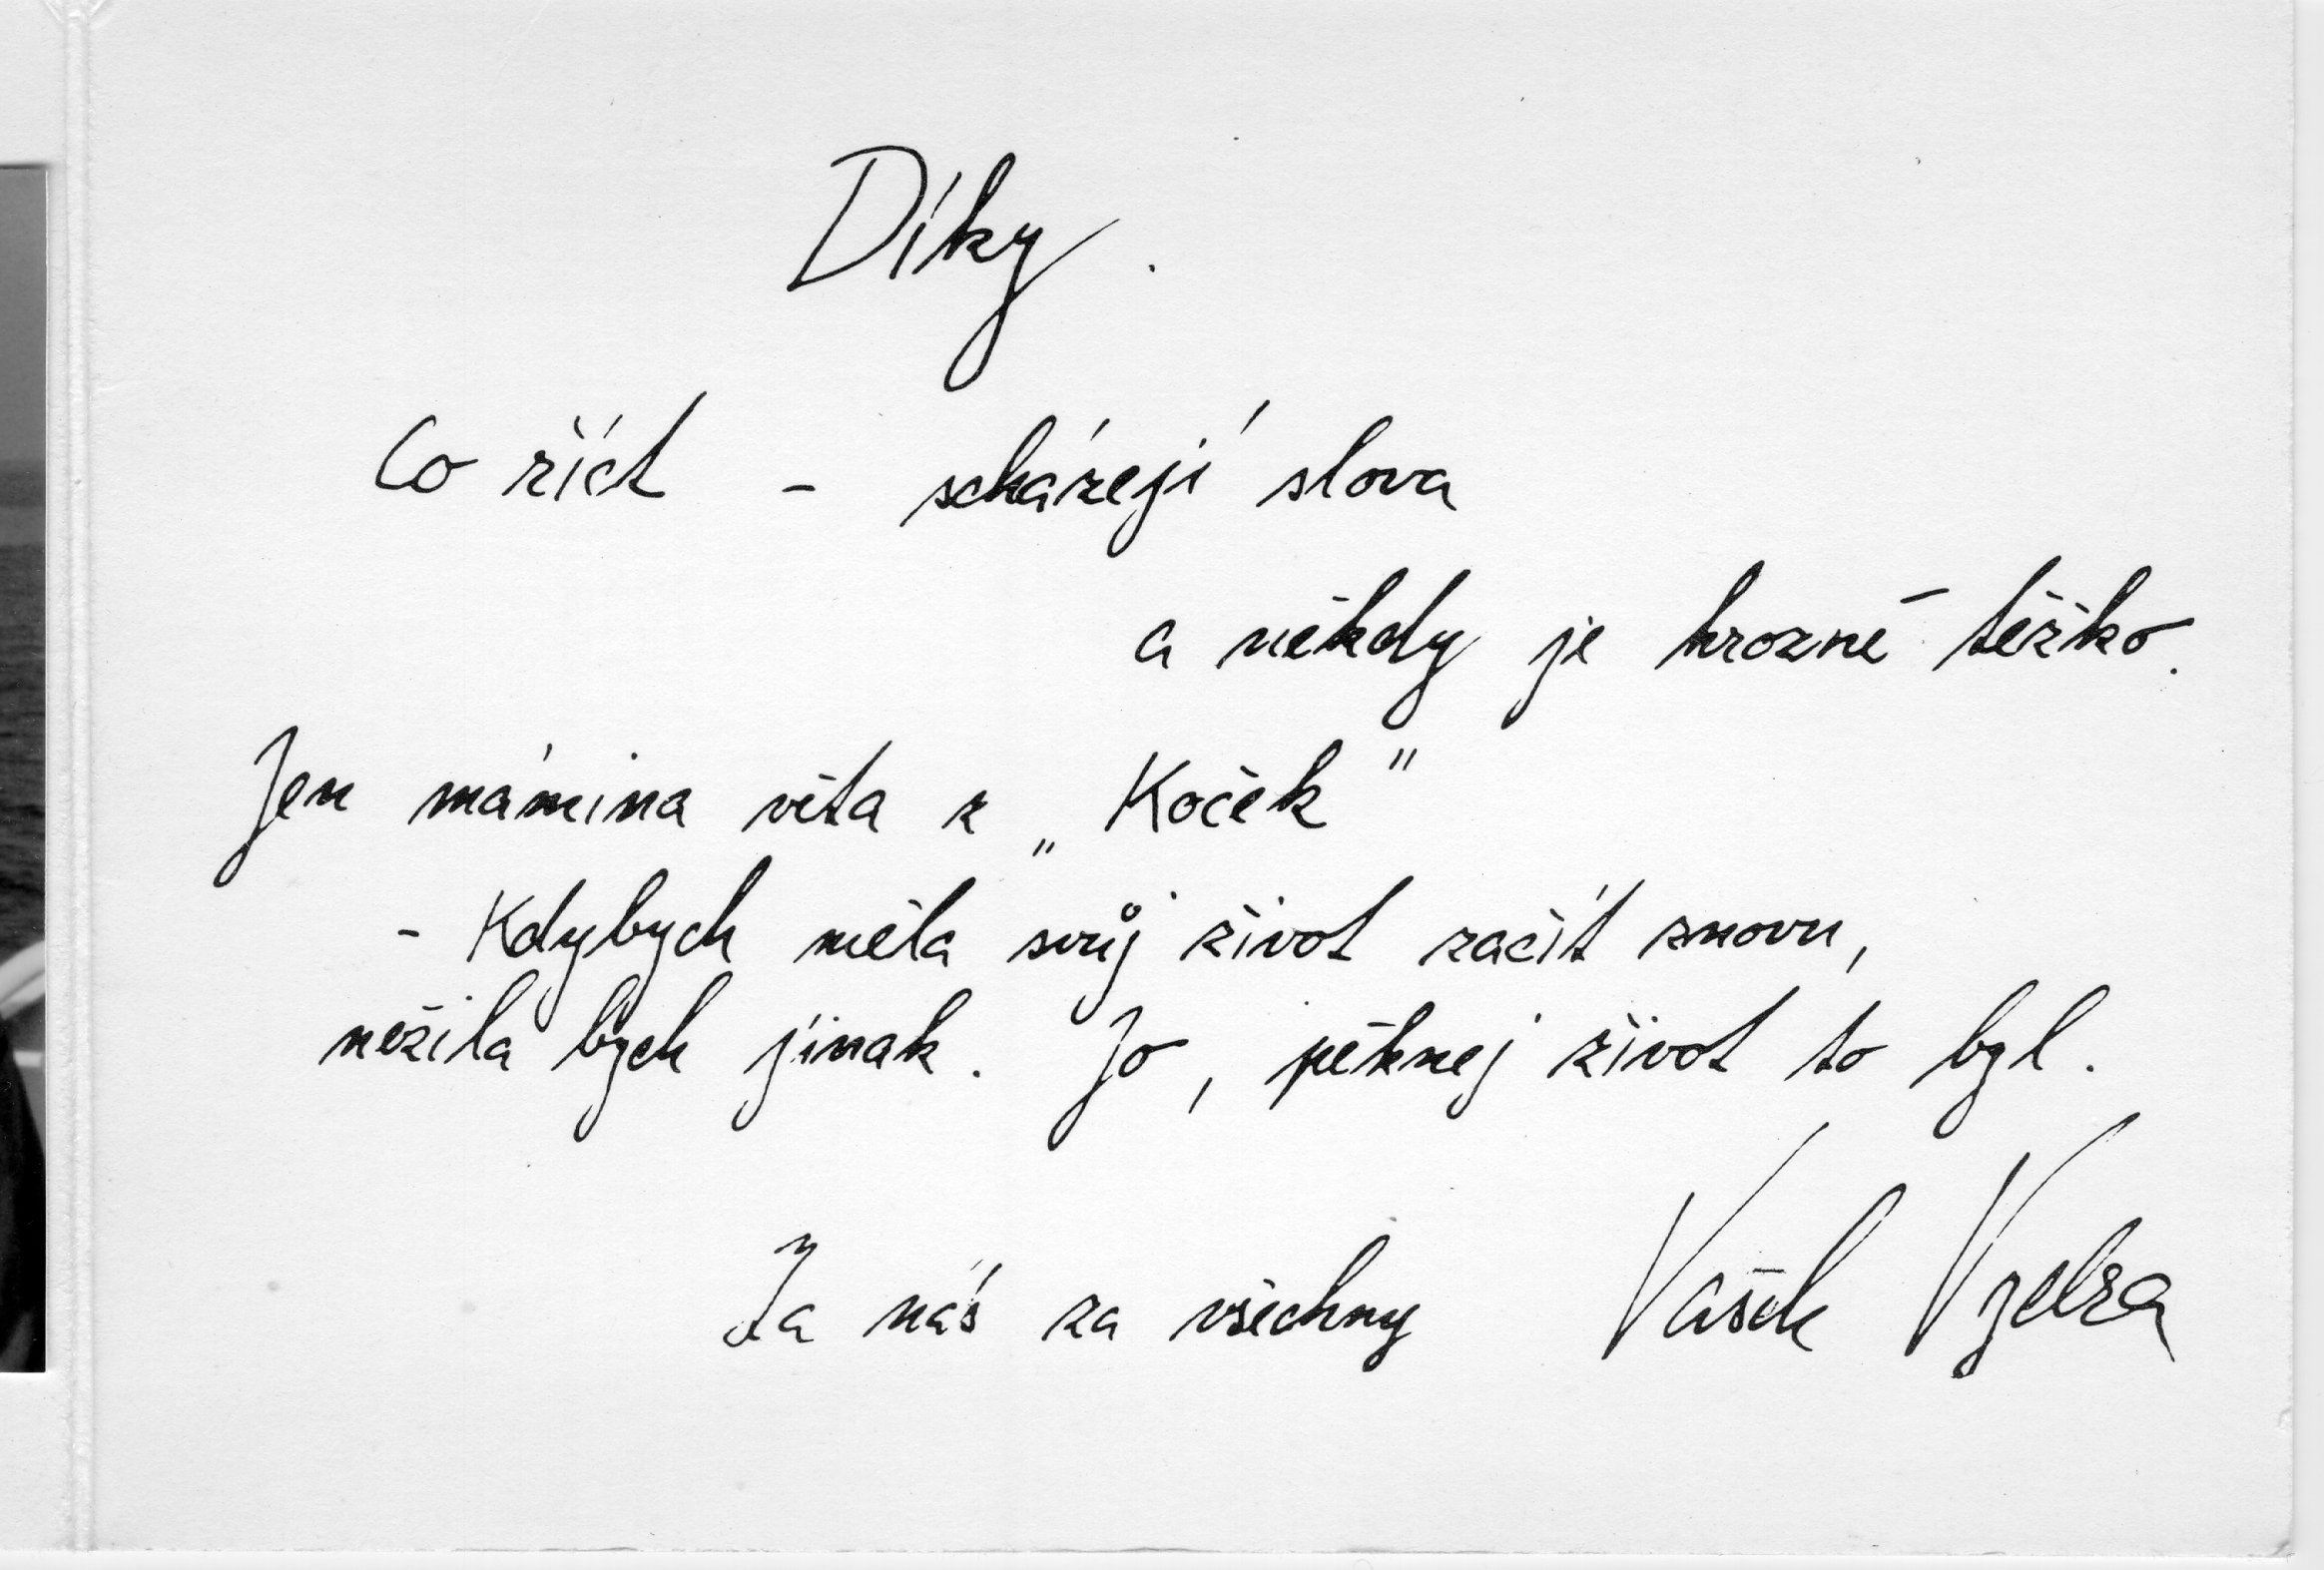 Díky.
Co říct - scházejí slova
a někdy je hrozně těžko.
Jen mámina věta z „Koček"
- Kdybych měla svůj život začít znovu,
nežila bych jinak. Jo, pěknej život to byl.
Za nás za všechny Vašek Vydra